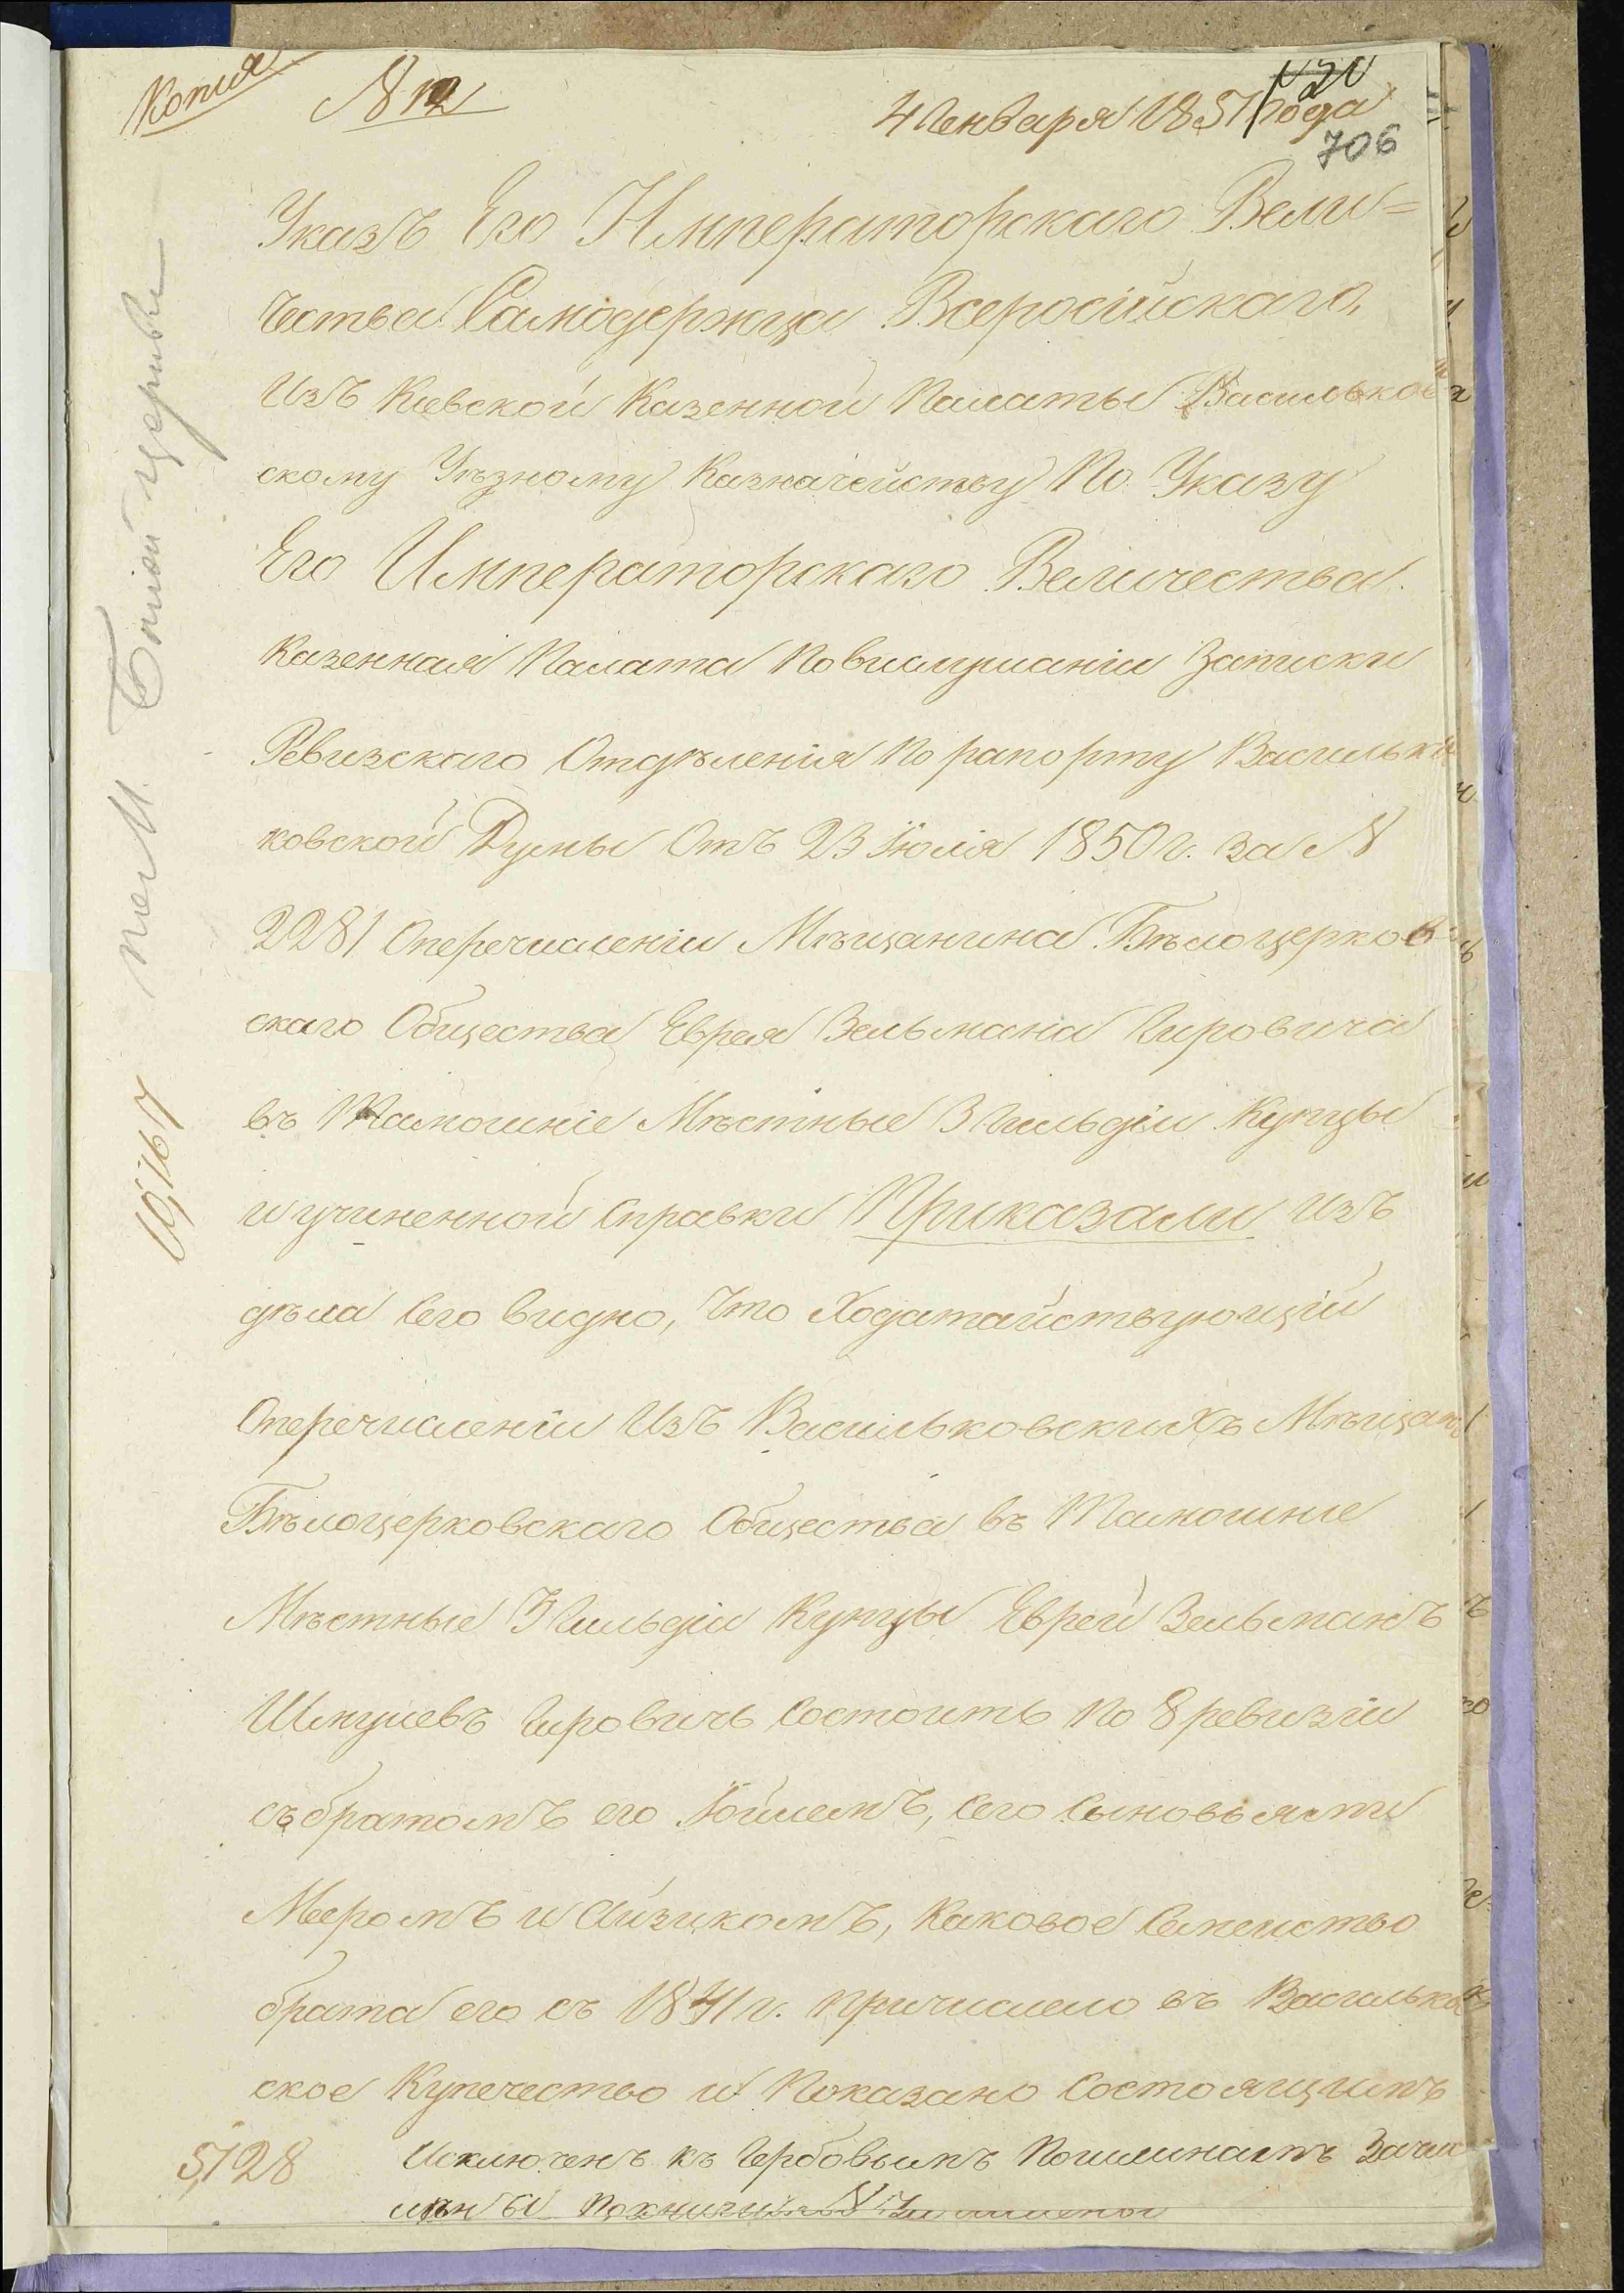 Копия
N 12
4 Генваря 1851 года
706
Указъ Его Императорскаго Вели=
чества Самодержца Всеросійскаго,
Изъ Кіевской Казенной Палаты Васильков
скому Уѣзному Казначейству По Указу
Его Императорскаго Величества.
Казенная Палата По выслушаніи Записки
Ревизскаго Отдѣленія По рапорту Василь
ковской Думы Отъ 23 Іюля 1850 г. за N
2281 О перечисленіи Мѣщанина Бѣлоцерков
скаго Общества Еврея Зельмана Гировича
въ Тамошніе Мѣстные 3 Гильдіи Купцы
и учиненной Справки Приказали Изъ
дѣла Сего видно, Что Ходатайствующій
О перечисленіи Изъ Васильковскихъ Мѣщанъ
Бѣлоцерковскаго Общества въ Тамошние
Мѣстные 3 Гильдіи Купцы Еврей Зельманъ
Шмулевъ Гировичъ Состоитъ По 8 ревизіи
съ братомъ его Іойлемъ, Сего Сыновьями
Мееромъ и Айзикомъ, Каковое Семейство
брата его съ 1841 г. причислено въ Васильков
ское Купечество и Показано Состоящимъ
Исключенъ къ Гербовымъ Пошлинамъ
5,728
10,167
по м. Бѣлой церкви